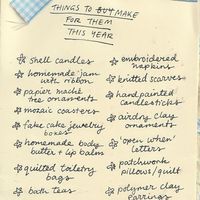 THINGS TO BUY MAKE
FOR THEM
THIS YEAR
* shell candles
* homemade jam
with ribbon
* papier maché
tree ornaments
* mozaic coasters
* fake cake jewelry
boxes
* homemade body
butter + lip balm
* quilted toiletry
bags
* bath teas
* embroidered
napkins
* knitted scarves
* hand painted
candlesticks
* airdry clay
ornaments
* 'open when'
letters
* patchwork
pillows/quilt
* polymer clay
earrings